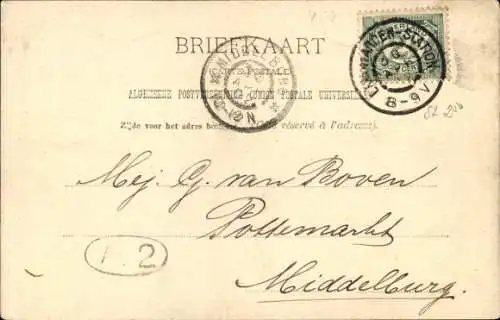 BRIEFKAART
ALGEMEENE POSTVEREENIGING (UNION POSTALE UNIVERSELLE)
Zijde voor het adres réservé à l'adresse).
STATION
8-9V
Mej. G. van Boven
Pottemarkt
Middelburg.
2